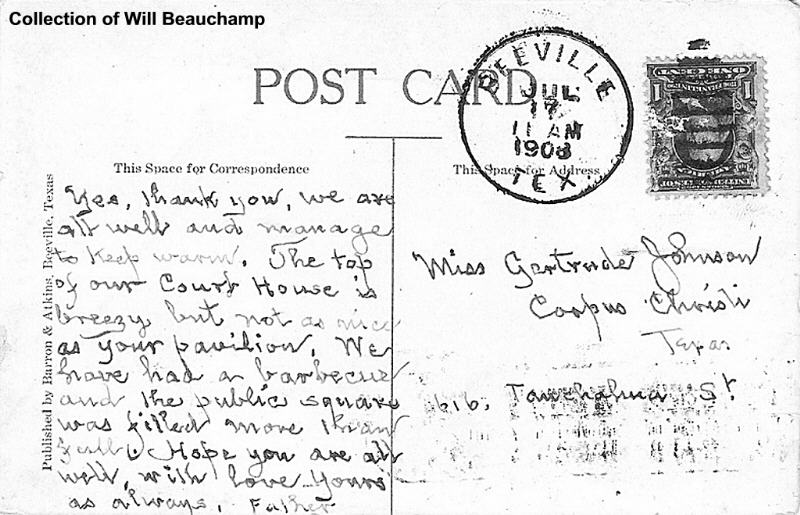 Collection of Will Beauchamp
POST CARD
BEEVILLE
JUL
17
11 AM
1908
TEX.
1
1
This Space for Correspondence
This Space for Address
Published by Barron & Atkins, Beeville, Texas
Yes, thank you, we are
all well and manage
to keep warm. The top
of our Court House is
breezy but not as nice
as your pavilion. We
have had a barbecue
and the public square
was filled more than
full. Hope you are all
well, with love Yours
as always, Father
Miss Gertrude Johnson
Corpus Christi
Texas
616. Tancahua St